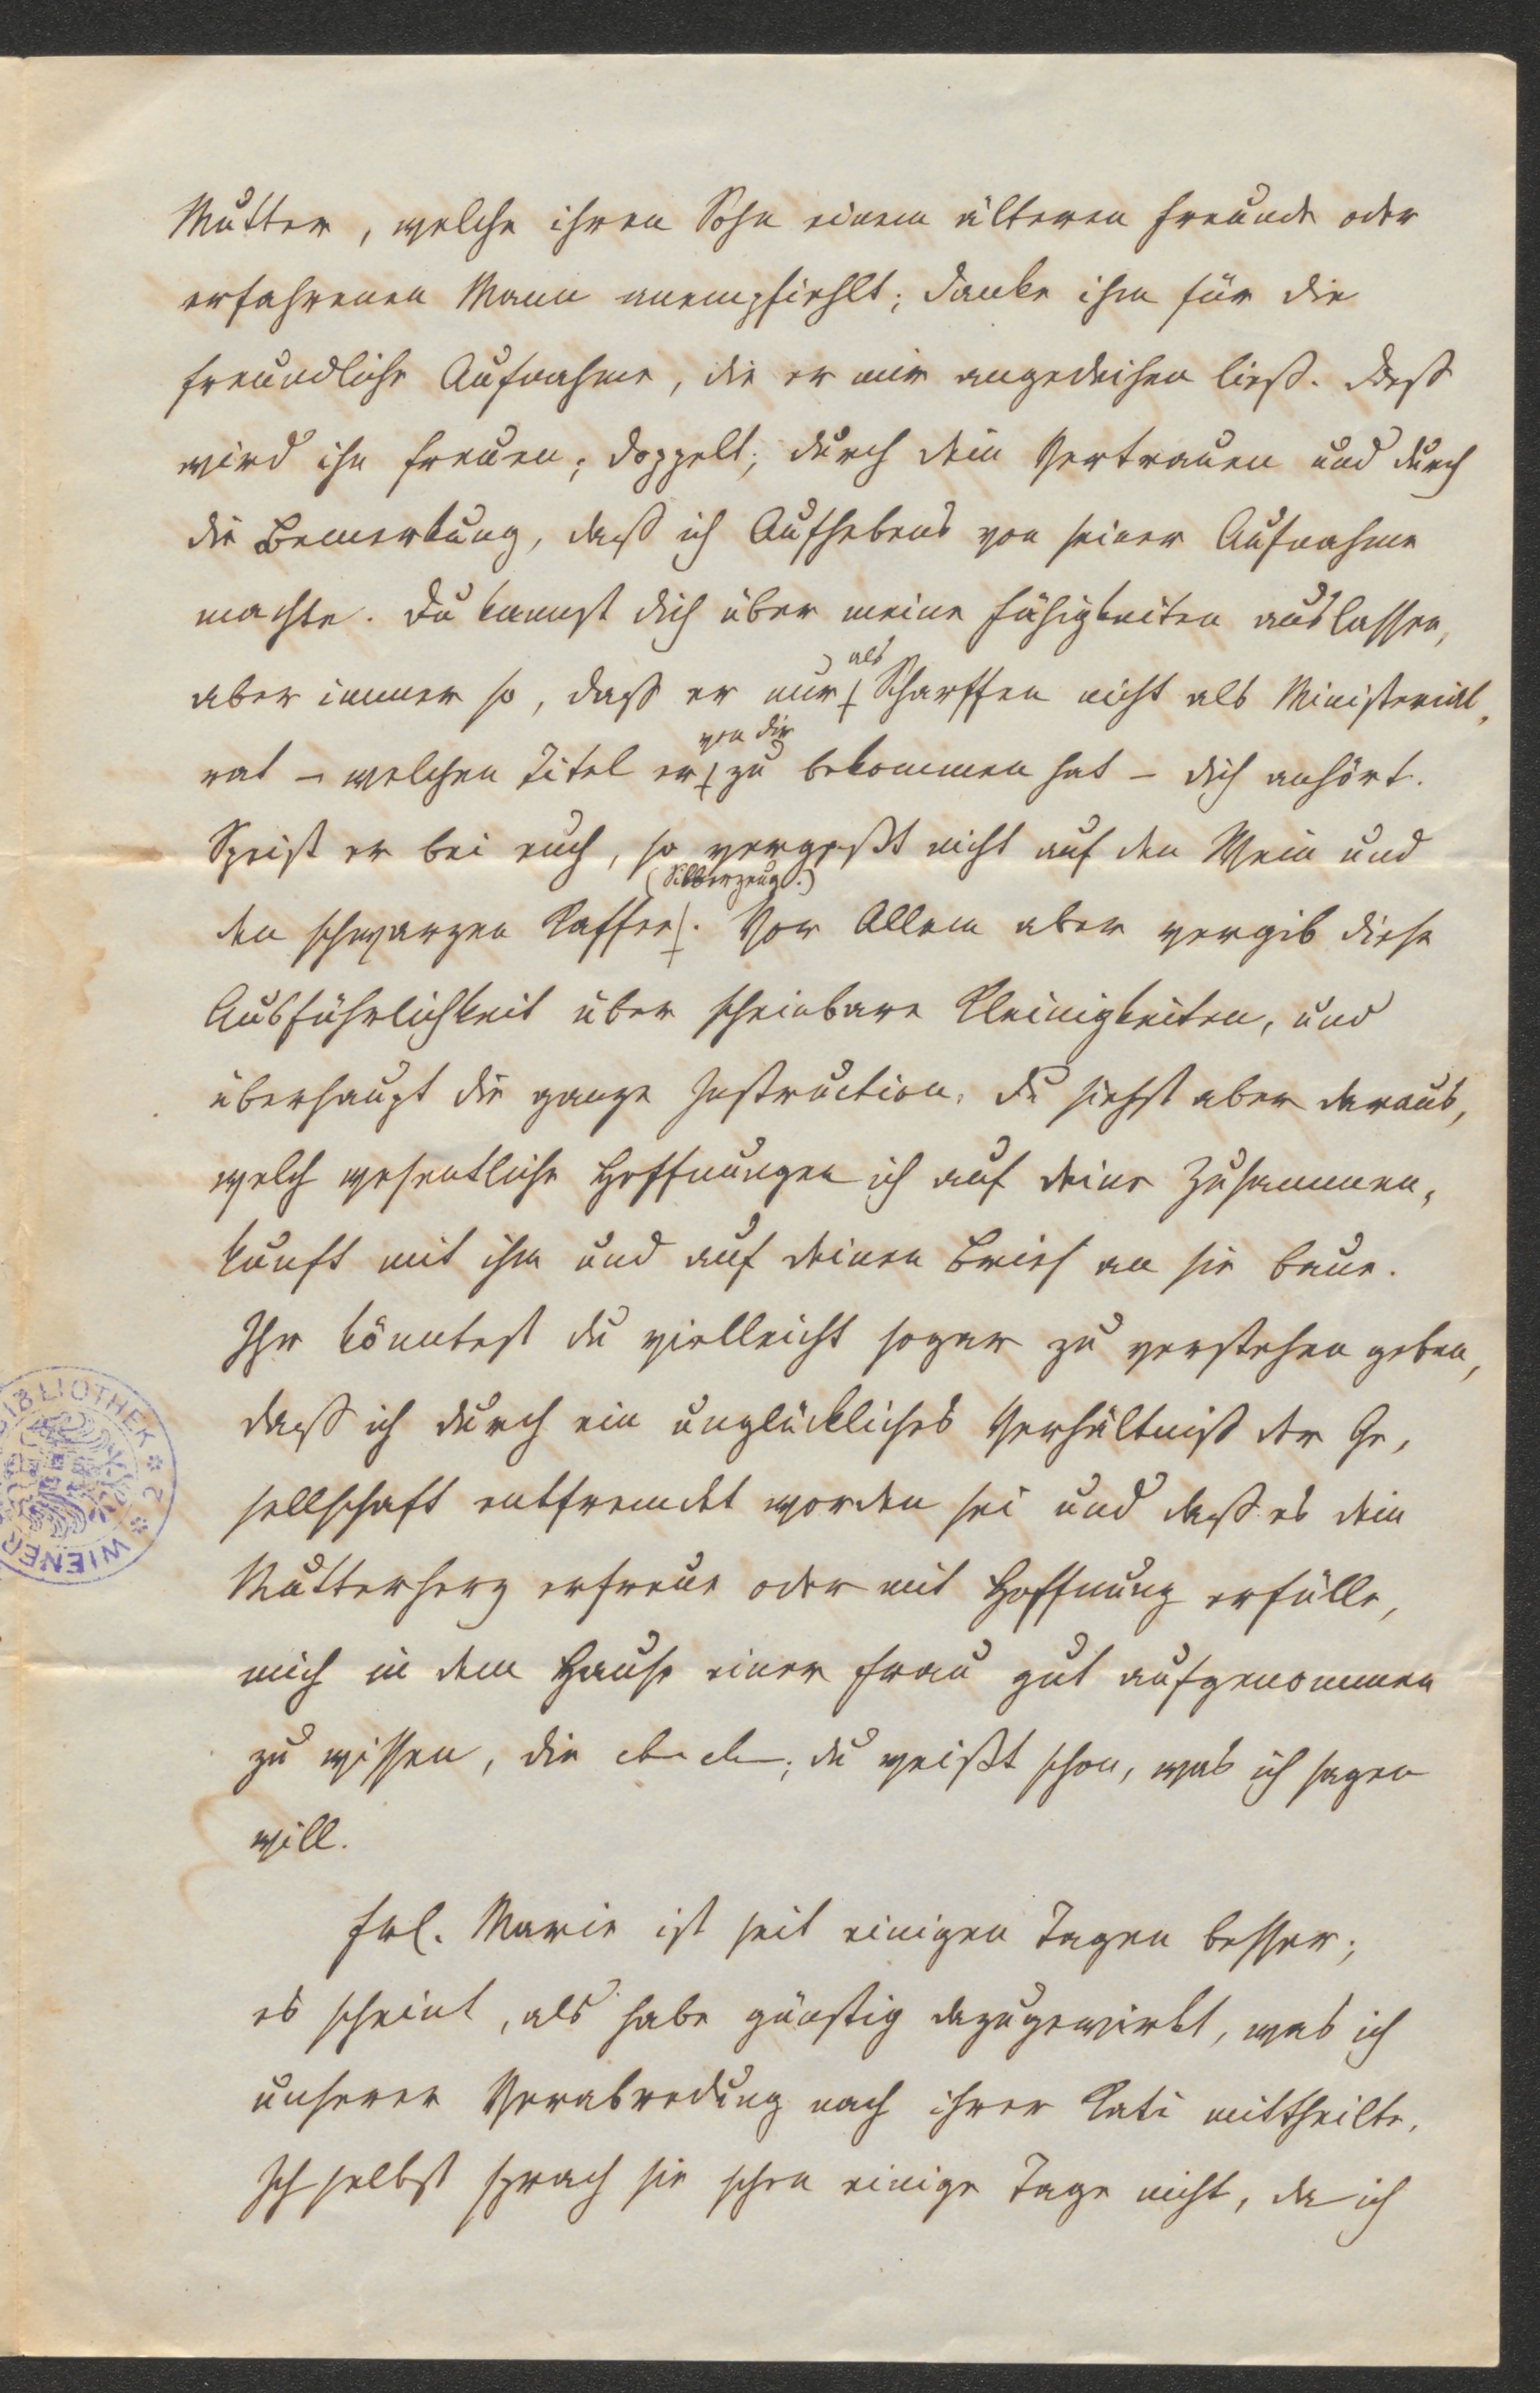 Mutter, welche ihren Sohn einem älteren Freunde oder
erfahrenen Mann anempfiehlt; danke ihm für die
freundliche Aufnahme, die er mir angedeihen ließ. Dieß
wird ihn freuen; doppelt; durch dein Vertrauen und durch
die Bemerkung, daß ich Aufhebens von seiner Aufnahme
machte. Du kannst dich über meine Fähigkeiten auslassen,
aber immer so, daß er nur als Scharffen nicht als Ministerial-
rat – welchen Titel er von dir zu bekommen hat – dich anhört.
Speist er bei euch, so vergeßt nicht auf den Wein und
den schwarzen Kaffee (Silberzeug.). Vor Allem aber vergib diese
Ausführlichkeit über scheinbare Kleinigkeiten, und
überhaupt die ganze Instruction. Du siehst aber daraus,
welch wesentliche Hoffnungen ich auf deine Zusammen-
kunft mit ihm und auf deinen Brief an sie baue.
Ihr könntest du vielleicht sogar zu verstehen geben,
daß ich durch ein unglückliches Verhältniß der Ge-
sellschaft entfremdet worden sei und daß es dein
Mutterherz erfreue oder mit Hoffnung erfülle,
mich in dem Hause einer Frau gut aufgenommen
zu wissen, die etc etc; du weißt schon, was ich sagen
will.
Frl. Marie ist seit einigen Tagen besser;
es scheint, als habe günstig dazugewirkt, was ich
unserer Verabredung nach ihrer Kati mittheilte.
Ich selbst sprach sie schon einige Tage nicht, da ich
BIBLIOTHEK * 2 * WIENER